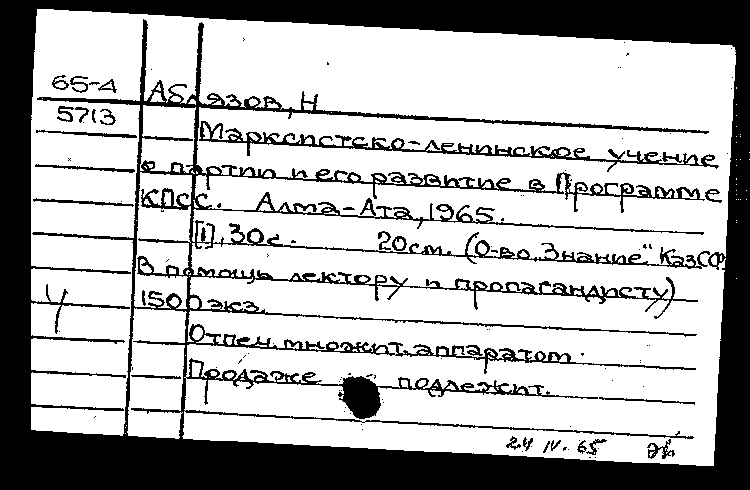 65-4 Аблязов, Н
5713
Марксистско-ленинское учение
о партии и его развитие в Программе
КПСС. Алма-Ата, 1965.
[1], 30с. 20см. (О-во „Знание" КазССР
В помощь лектору и пропагандисту)
1500 экз.
Отпеч. множит. аппаратом.
Продаже подлежит.
24 IV. 65